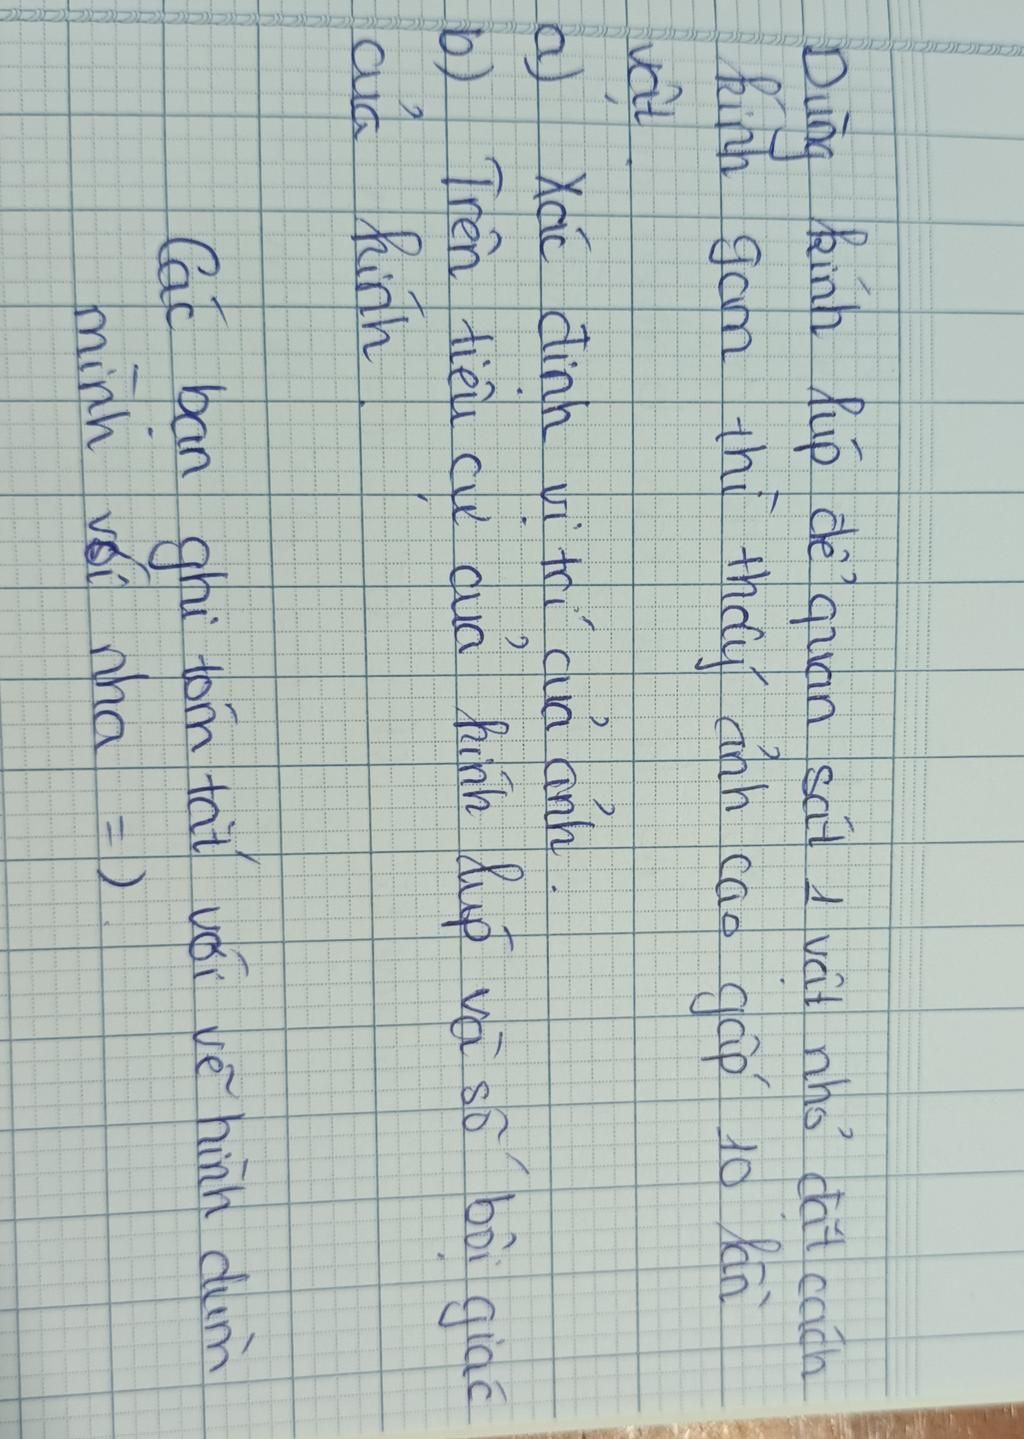 Dùng kính lúp để quan sát 1 vật nhỏ đặt cách
kính gam thì thấy ảnh cao gấp 10 lần
vật.
a) Xác định vị trí của ảnh.
b) Trên tiêu cự của kính lúp và số bội giác
của kính.
Các bạn ghi tóm tắt với vẽ hình dùm
mình với nha =).